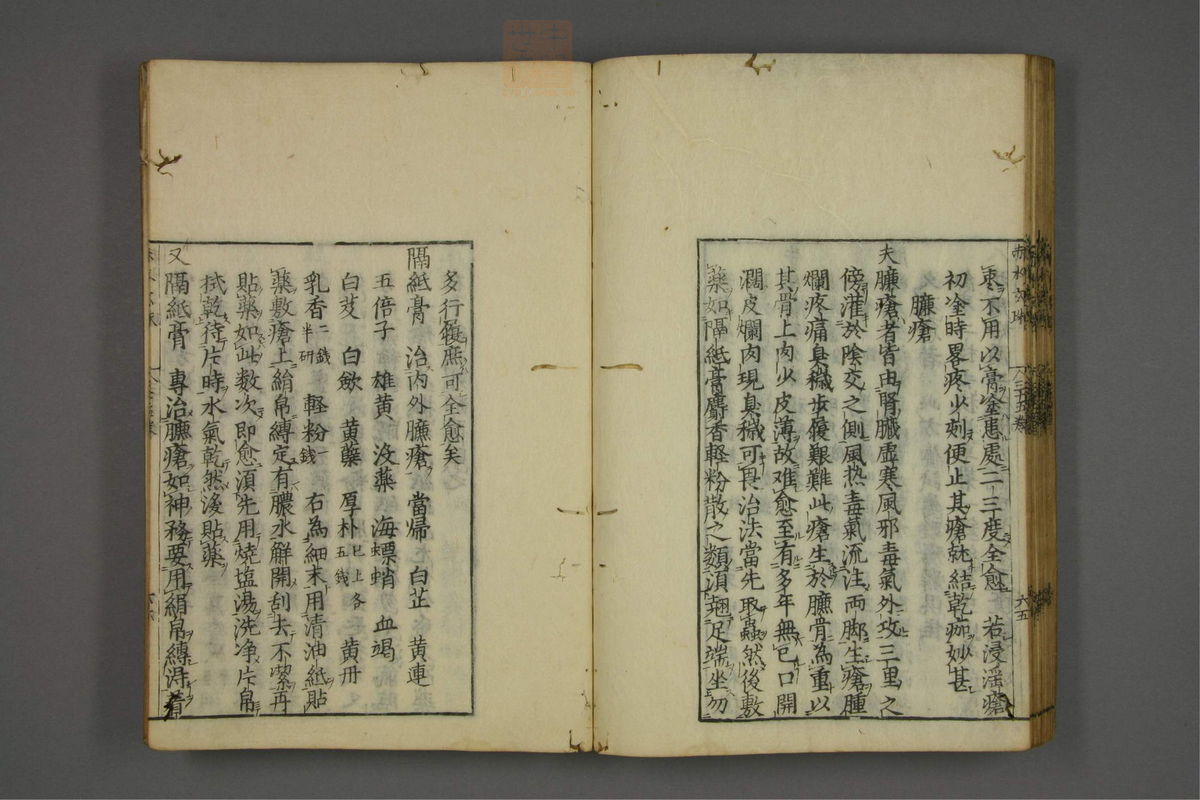 棗不用以膏塗患處二三度全愈　若浸淫瘡
初塗時畧疼少刻便止其瘡就結乾痂妙甚
臁瘡
夫臁瘡者皆由腎臓虚寒風邪毒氣外攻三里之
傍灌於陰交之側風热毒氣流注両脚生瘡腫
爛疼痛臭穢步履艱難此瘡生於臁骨為重以
其骨上肉少皮薄故难愈至有多年無已口開
濶皮爛肉現臭穢可畏治法當先取蟲然後敷
藥如隔紙膏麝香軽粉散之類須翹足端坐勿
多行履庶可全愈矣
隔紙膏　治内外臁瘡　當帰　白芷　黄連
五倍子　雄黄　没藥　海螵蛸　血竭
白芨　白歛　黄蘗　厚朴已上各五錢　黄丹
乳香二錢半研　軽粉一錢　右為細末用清油紙貼
藥敷瘡上絹帛縛定有膿水解開刮去不潔再
貼藥如此数次即愈須先用燒塩湯洗净片帛
拭乾待片時水氣乾然後貼藥
又隔紙膏　專治臁瘡如神務要用絹帛縛得着
三十五卷
六五